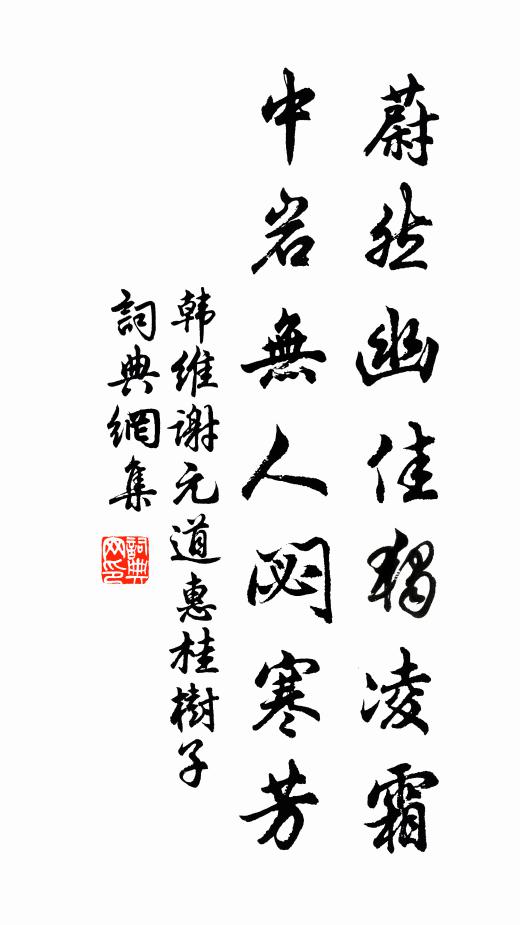 蔚然幽佳独凌霜
中岩無人閟寒芳
韩维谢元道惠桂樹子
詞典網集
詞典
网印